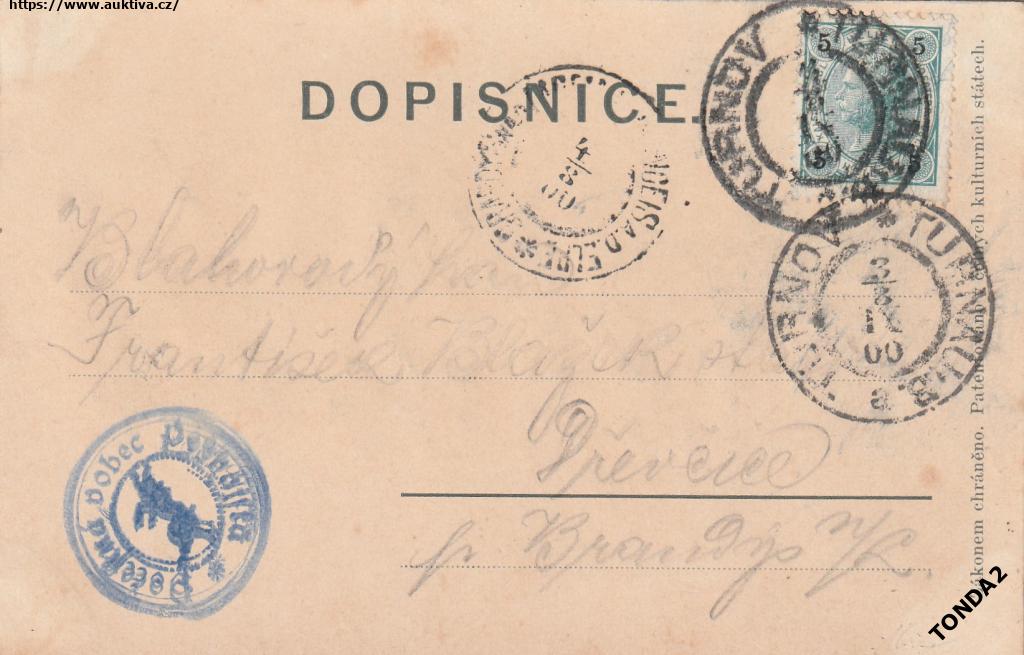 https://www.auktiva.cz/
DOPISNICE.
5 5
TURNOV * TURNAU
4
8/
00
TURNOV * TURNAU
3
IX
00
a
Blahorodý
František
Dřevčice
p. Brandýs n/L.
obec
*
zákonem chráněno. Patentováno ve všech kulturních státech.
TONDA2